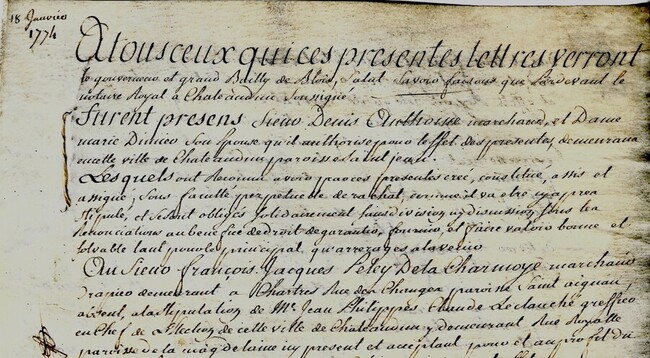 18 Janvier
1774
A tous ceux qui ces presentes lettres verront
le gouverneur et grand Bailly de Blois, Salut Savoir faisons que Pardevant le
notaire Royal a Chateaudun Soussigné
Furent presens Sieur Denis Anthoine marchand, et Dame
marie Dimier Son Epouse qu'il authorise pour l'effet des presentes demeurans
en cette ville de Chateaudun paroisse Saint jean.
Lesquels ont Reconnu avoir par ces presentes creé, constitué, assis et
assigné, Sous faculté perpetuelle de rachat, comme il va etre cy apres
Stipulé, et Se sont obligés Solidairement Sans division ny discussion, Sous les
Renonciations au benefice de droit de garantir, fournir, et faire valoir bonne et
solvable tant pour le principal qu'arrerages a l'avenir
Au Sieur françois Jacques Petey De la Charmoye marchand
Drapier demeurant a Chartres Rue des Changes paroisse Saint aignan,
absent, a la Stipulation de Me. Jean Philippes Claude Leclanché greffier
en Chef de L'Election de cette ville de Chateaudun y demeurant Rue Royalle
paroisse de la magdelaine icy present et acceptant pour et au profit du